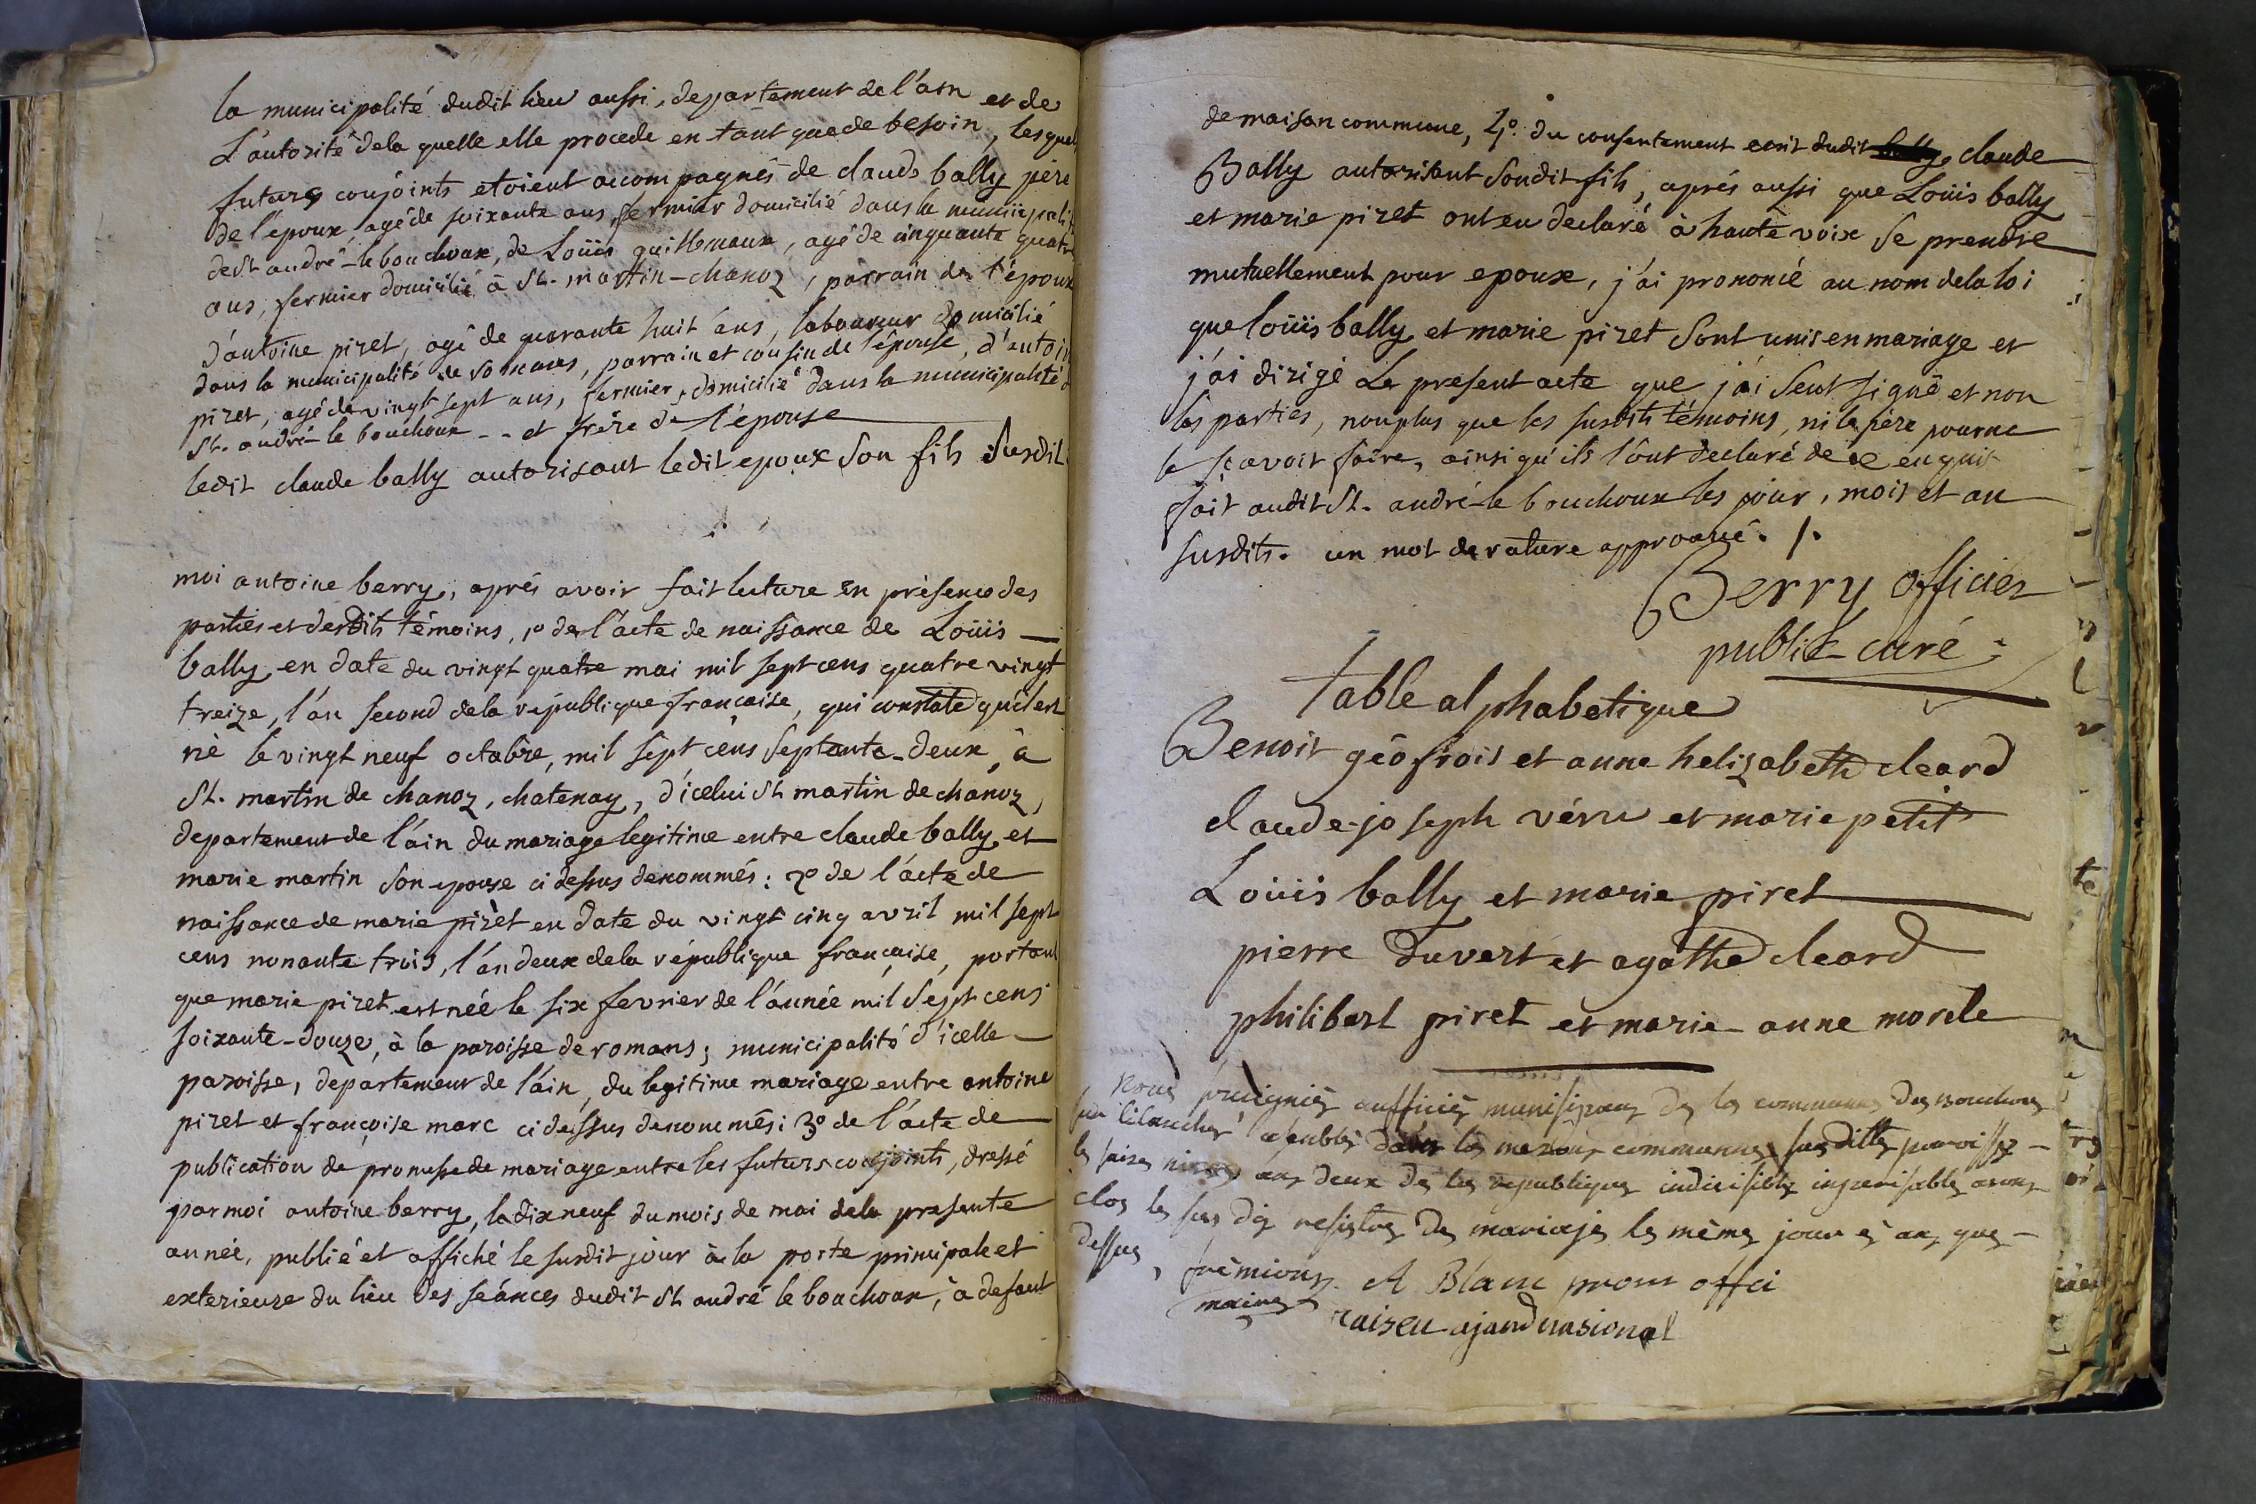 la municipalité dudit lieu aussi, departement de l'ain et de
L'autorité dela quelle elle procede en tant que de besoin, lesquel
futurs conjoints etoient accompagnés de claude bally père
de l'epoux agé de soixante ans, fermier domicilié dans la municipali
de St andré-le bouchoux, de Loüis guillemaux, agé de cinquante quatr
ans, fermier domicilié à St. martin-chanoz, parrain de l'epoux
d'antoine piret, agé de quarante huit ans, laboureur domicilié
dans la municipalité de romans, parrain et cousin de l'epouse, d'antoi
piret, agé de vingt sept ans, fermier, domicilié dans la municipalité d
St. andré-le bouchoux -- et frère de l'epouse
ledit claude bally autorisant ledit epoux son fils susdit
moi antoine berry, aprés avoir fait lecture en présence des
parties et desdits témoins, 1º de l'acte de naissance de Loüis
bally en date du vingt quatre mai mil sept cens quatre vingt
treize, l'an second dela république française, qui constate qu'il est
né le vingt neuf octobre, mil sept cens septante-deux, à
St. martin de chanoz, chatenay, d'icelui St martin de chanoz,
departement de l'ain du mariage legitime entre claude bally et
marie martin son epouse ci dessus denommés: 2º de l'acte de
naissance de marie piret en date du vingt cinq avril mil sept
cens nonante trois, l'an deux dela république française, portant
que marie piret est née le six fevrier de l'année mil sept cens
soixante-douze, à la paroisse de romans; municipalité d'icelle
paroisse, departement de l'ain, du legitime mariage entre antoine
piret et françoise marc ci dessus denommés: 3º de l'acte de
publication de promesse de mariage entre les futurs conjoints, dressé
par moi antoine berry, le dix neuf du mois de mai dela presente
année, publié et affiché le susdit jour à la porte principale et
exterieure du lieu des séances dudit St andré le bouchoux, à defaut
de maison commune, 4º. du consentement ecrit dudit bally claude
Bally autorisant sondit fils, aprés aussi que Loüis bally
et marie piret ont eu declaré à haute voix se prendre
mutuellement pour epoux, j'ai prononcé au nom dela loi
que loüis bally et marie piret sont unis en mariage et
j'ai dirigé Le present acte que j'ai seul signé et non
les parties, non plus que les susdits témoins, ni le père pour ne
le sçavoir faire, ainsi qu'ils l'ont declaré de ce enquis
fait audit St. andré-le bouchoux les jour, mois et an
susdits. un mot de rature approuvé. /.
Berry officier
public-curé
table alphabetique
Benoit géofrois et anne helizabeth cleard
claude-joseph véru et marie petit
Loüis bally et marie piret
pierre duvert et agathe cleard
philibert piret et marie-anne morele
nous munisipaux de la commune des Bouchoux
communes susditte paroisse
deux de la republique indivisible
clos les sus dis resistre de mariaje le même jour é an que
dessus, fremion A Blanc proru offci
maire
ajand nasional